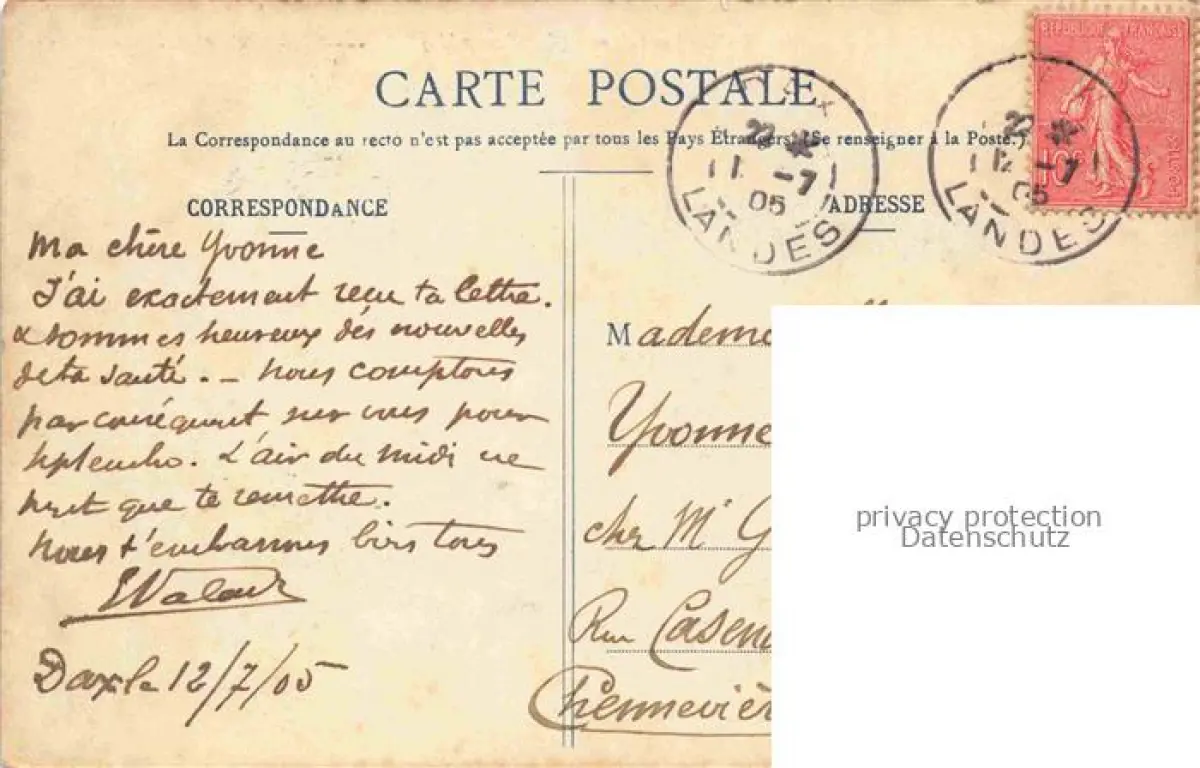 CARTE POSTALE
La Correspondance au recto n'est pas acceptée par tous les Pays Étrangers. (Se renseigner à la Poste.)
CORRESPONDANCE
Ma chère Yvonne
J'ai exactement reçu ta lettre.
& sommes heureux des nouvelles
de ta santé. – Nous comptons
par conséquent sur vous pour
L'air du midi ne
peut que te remettre.
Nous t'embrassons bien tous
Dax le 12/7/05
ADRESSE
Madem
Yvonne
chez Mr G
Rue Casen
Chennevièr
DAX
22
12 -7
05
LANDES
22
12 -7
05
LANDES
REPUBLIQUE FRANÇAISE
10c
privacy protection
Datenschutz